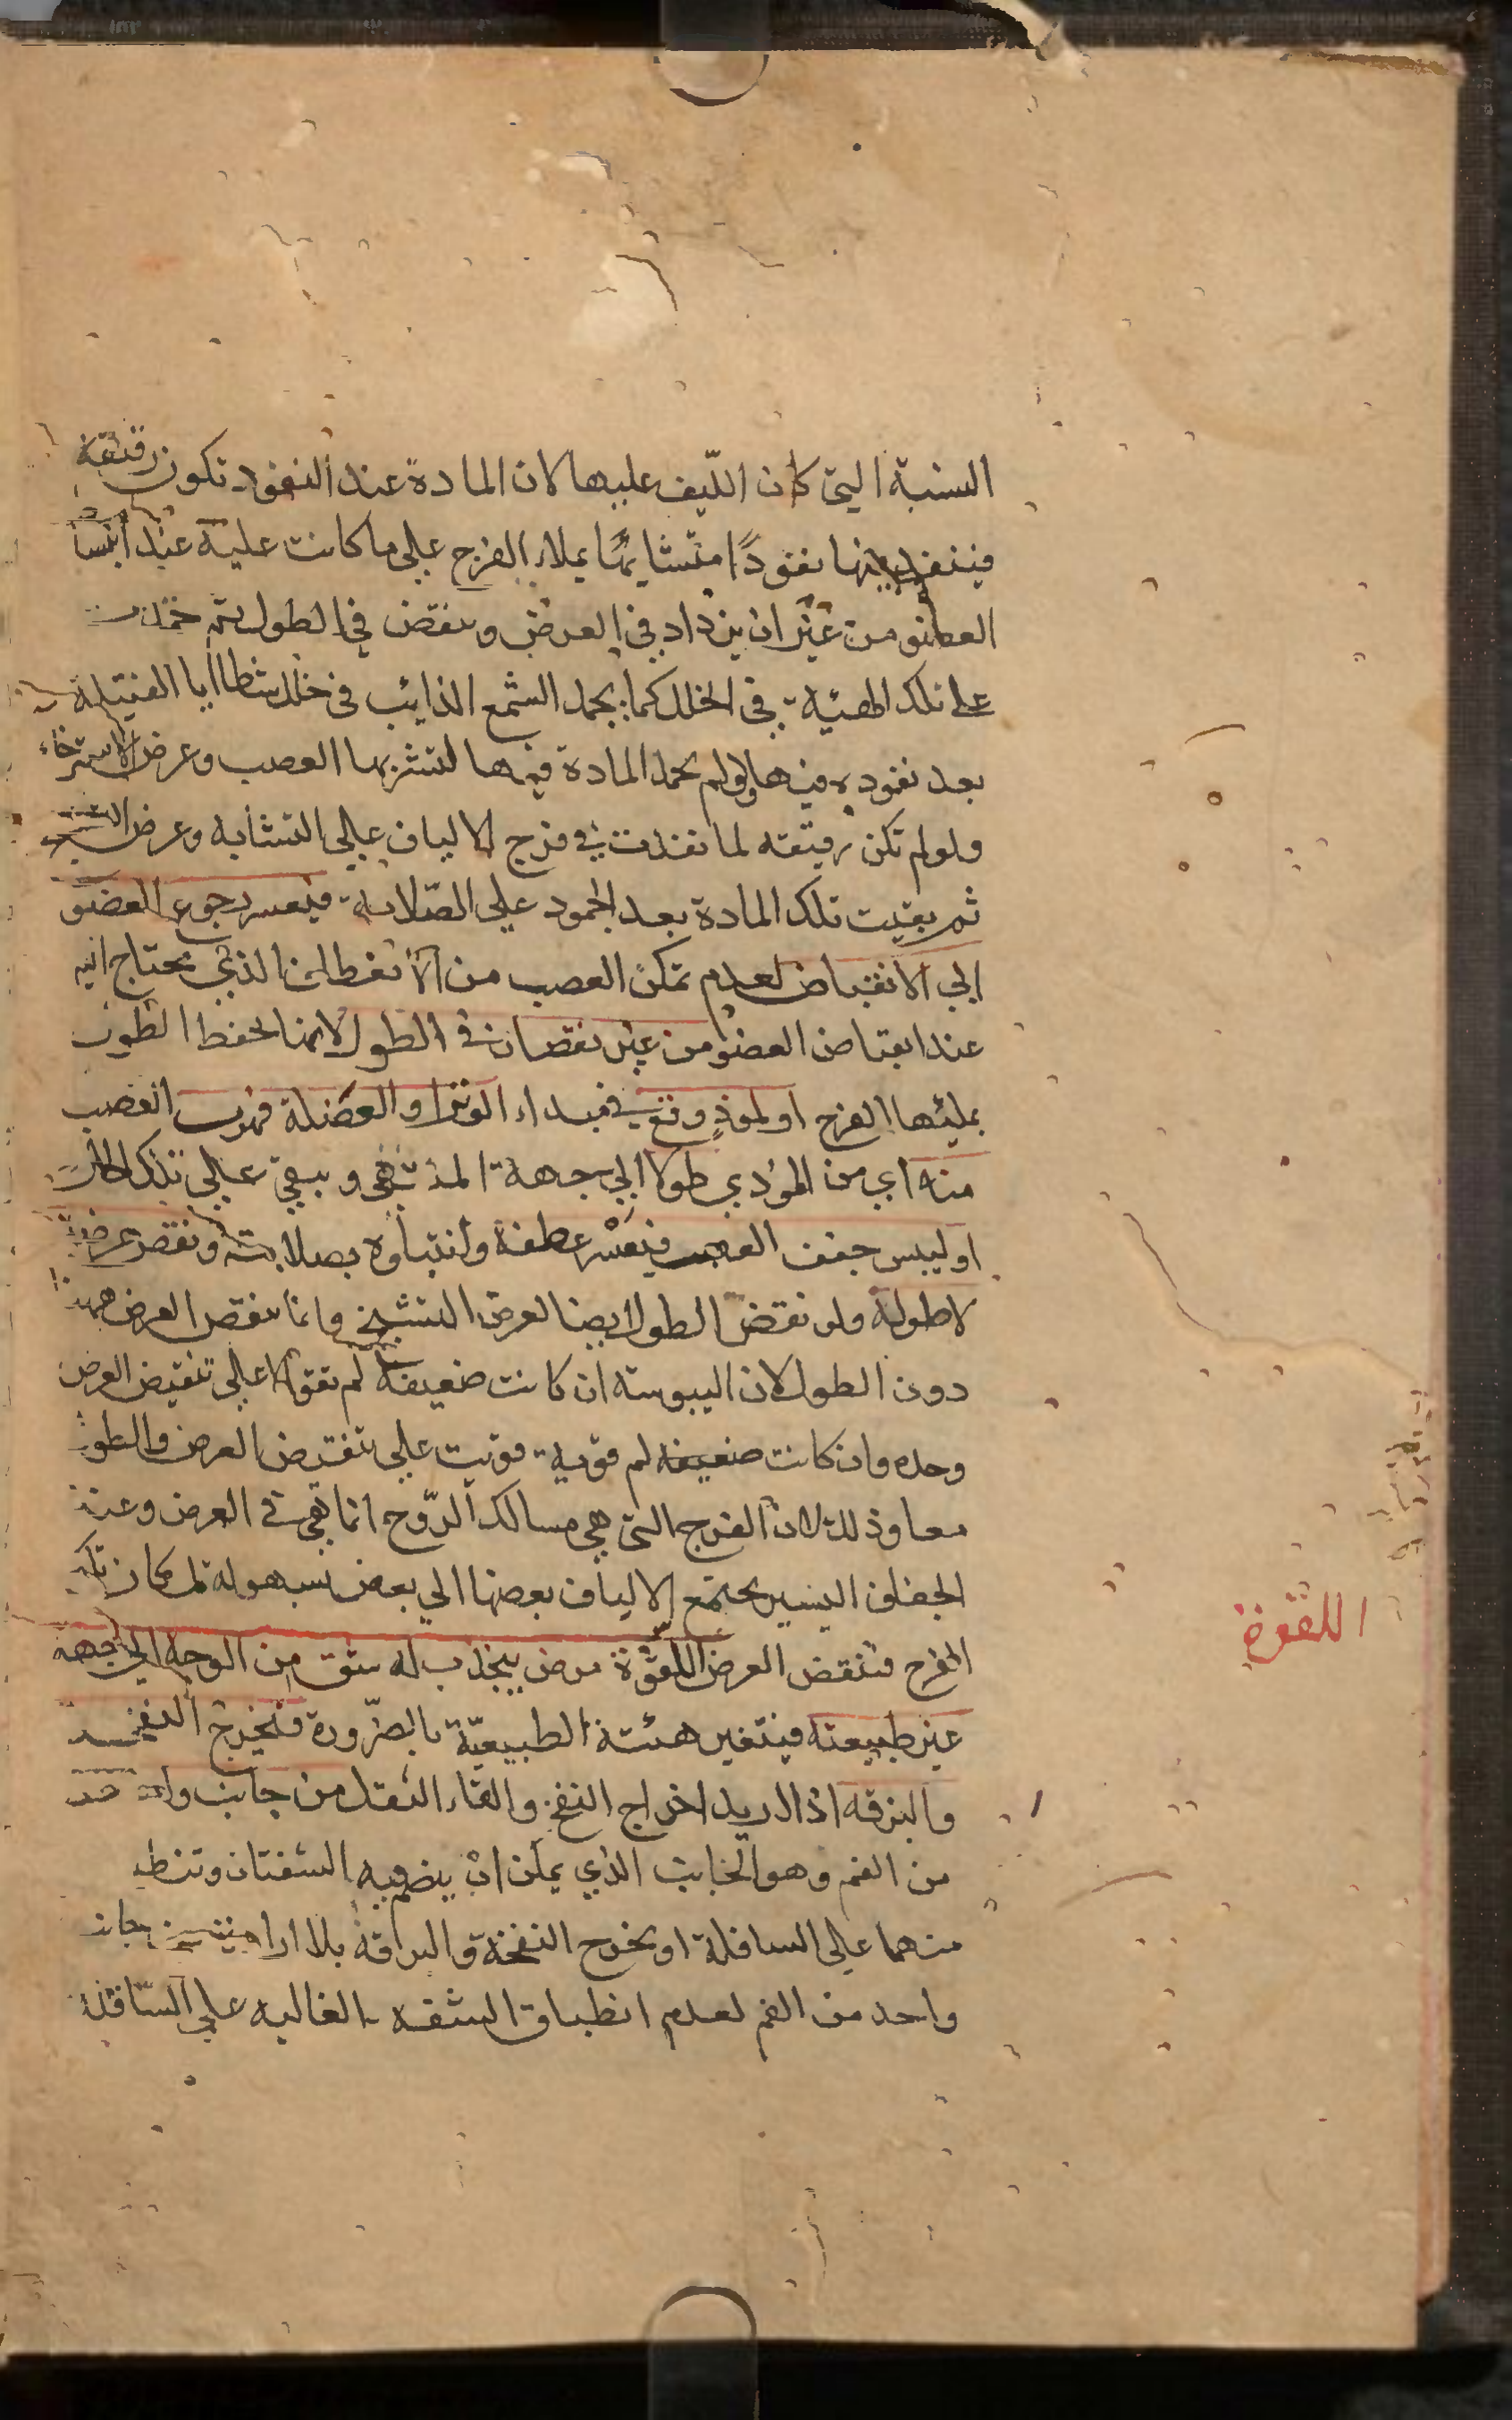 السنبة التي كان الليف عليها لان المادة عند النفود تكون رقيقة
فينفد بينها نفودًا متشابهًا يملاء الفرج على ما كانت عليه عند انبسا
العضو من غير ان يزداد في العرض وينقص في الطول ثم
على تلك الهيئة في الخلل كما يجمد الشمع الذايب في خلل شظايا الفتيلة
بعد نفوده فيها ولو لم يجمد المادة فيها لتشربها العصب وعرض الاسترخاء
ولو لم تكن رقيقه لما نفذت في فرج الالياف على التشابه وعرض
ثم بقيت تلك المادة بعد الجمود على الصلابة فيعسر رجوع العضو
الي الانقباض لعدم تمكن العصب من الانعطاف الذي يحتاج اليه
عند انقباض العضو من غير نقصان في الطول لانها تحفظ الطول
بمليها الفرج او لموذ وقع في مبداء الوتر او العضلة فهرب العصب
منه اي من المؤدي طولا الي جهة المنتهي ويبقي علي تلك الحال
او ليبس جفف العصب فيعسر عطفه وانثناوه بصلابته ونقص عرضه
لا طوله ولو نقص الطول ايضا لعرض التشنج وانما ينقص العرض ههنا
دون الطول لان اليبوسة ان كانت ضعيفة لم تقو الا على تنقيص العرض
وحده وان كانت ضعيفه لم قوية قويت على تنقيص العرض والطول
معا وذلك لان الفرج التي هي مسالك الروح انما هي في العرض وعند
الجفاف اليسير يجتمع الالياف بعضها الي بعض بسهولة لمكان تلك
الفرج فينقص العرض اللقوة مرض ينجذب له شق من الوجه الي جهة
غير طبيعته فيتغير هيئته الطبيعية بالضرورة فتخرج النفخة
والبزقه اذا اريد اخراج النفخ والقاء الثقل من جانب واحد
من الفم وهو الجانب الذي يمكن ان ينضم فيه الشفتان وتنطبق
منهما على السافلة او يخرج النفخة والبزاقة بلا ارادة من جانب
واحد من الفم لعدم انطباق الشفه العاليه على السافلة
اللقوة